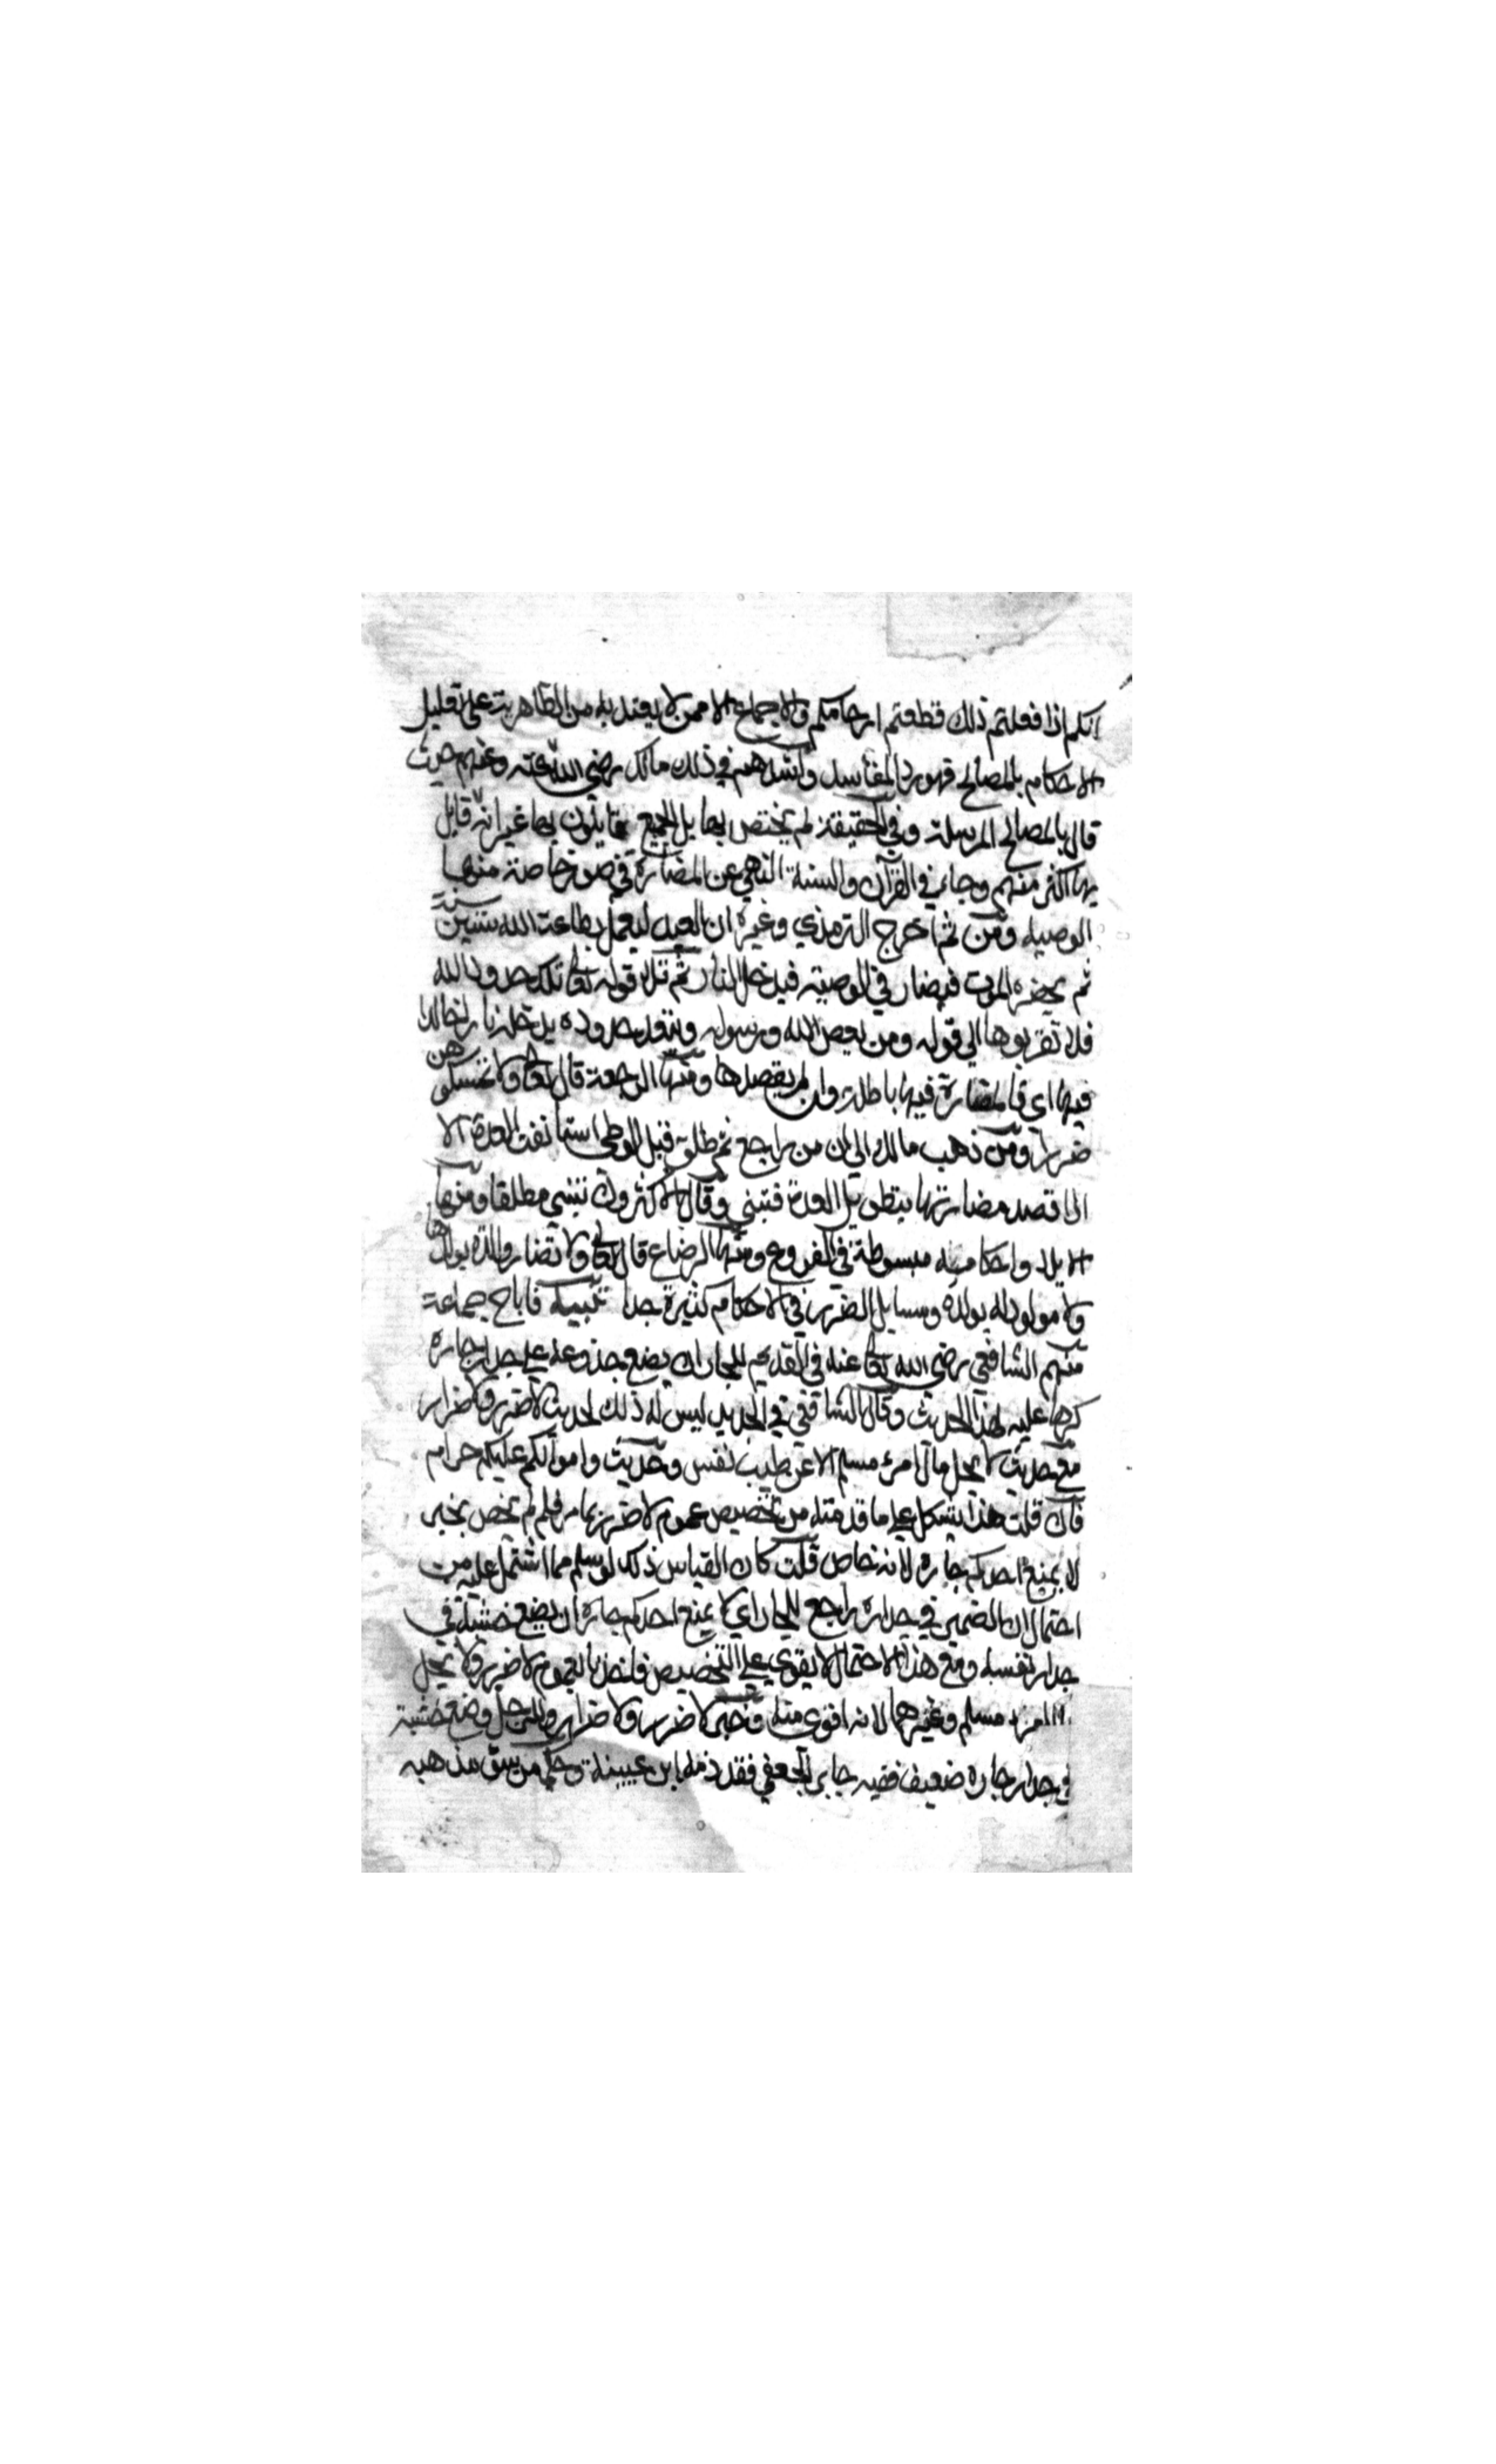 انكم اذا فعلتم ذلك قطعتم ارحامكم والاجماع الا ممن لا يعتد به من الظاهرية على تعليل
الاحكام بالمصالح ودرء المفاسد واشدهم في ذلك مالك رضي الله عنه وعنهم حيث
قال بالمصالح المرسلة وفي الحقيقة لم يختص بها بل الجميع قايلون بها غير انه قايل
بها اكثر منهم وجاء في القرآن والسنة النهي عن المضارة في صور خاصة منها
الوصية ومن ثم اخرج الترمذي وغيره ان العبد ليعمل بطاعة الله ستين سنة
ثم يحضره الموت فيضار في الوصية فيدخل النار ثم تلا قوله تعالى تلك حدود الله
فلا تقربوها الى قوله ومن يعص الله ورسوله ويتعد حدوده يدخله نارا خالدا
فيها اي فالمضارة فيها باطلة وان لم يقصدها ومنها الرجعة قال تعالى ولا تمسكوهن
ضرارا ومن ذهب مالك الى ان من راجع ثم طلق قبل الوطئ استانفت العدة الا
ان قصد مضارتها بتطويل العدة فتبني وقال الاكثرون تبني مطلقا ومنها
الايلاء واحكامه مبسوطة في الفروع ومنها الرضاع قال تعالى لا تضار والدة بولدها
ولا مولود له بولده ومسايل الضرر في الاحكام كثيرة جدا تنبيه فاباح جماعة
منهم الشافعي رضي الله تعالى عنه في القديم للجار ان يضع جذوعه على جدار جاره
كرها عليه لهذا الحديث وقال الشافعي في الجديد ليس له ذلك لحديث لا ضرر ولا ضرار
مع حديث لا يحل مال امرئ مسلم الا عن طيب نفس وحديث واموالكم عليكم حرام
فان قلت هذا يشكل على ما قدمته من تخصيص عموم لا ضرر بما مر فلم لم يخص بخبر
لا يمنع احدكم جاره لانه خاص قلت كان القياس ذلك لو سلم مما اشتمل عليه من
احتمال ان الضمير في جداره راجع للجار اي لا يمنع احدكم جاره ان يضع خشبة في
جدار نفسه ومع هذا الاحتمال لا يقوي على التخصيص فاخذنا بالعموم لا ضرر ولا يحل
مسلم وغيرهما لانه اقوى منه وخبر لا ضرر ولا ضرار وللرجل وضع خشبة
في جدار جاره ضعيف ففيه جابر الجعفي فقد ذمه ابن عيينة وحكى من سوء مذهبه